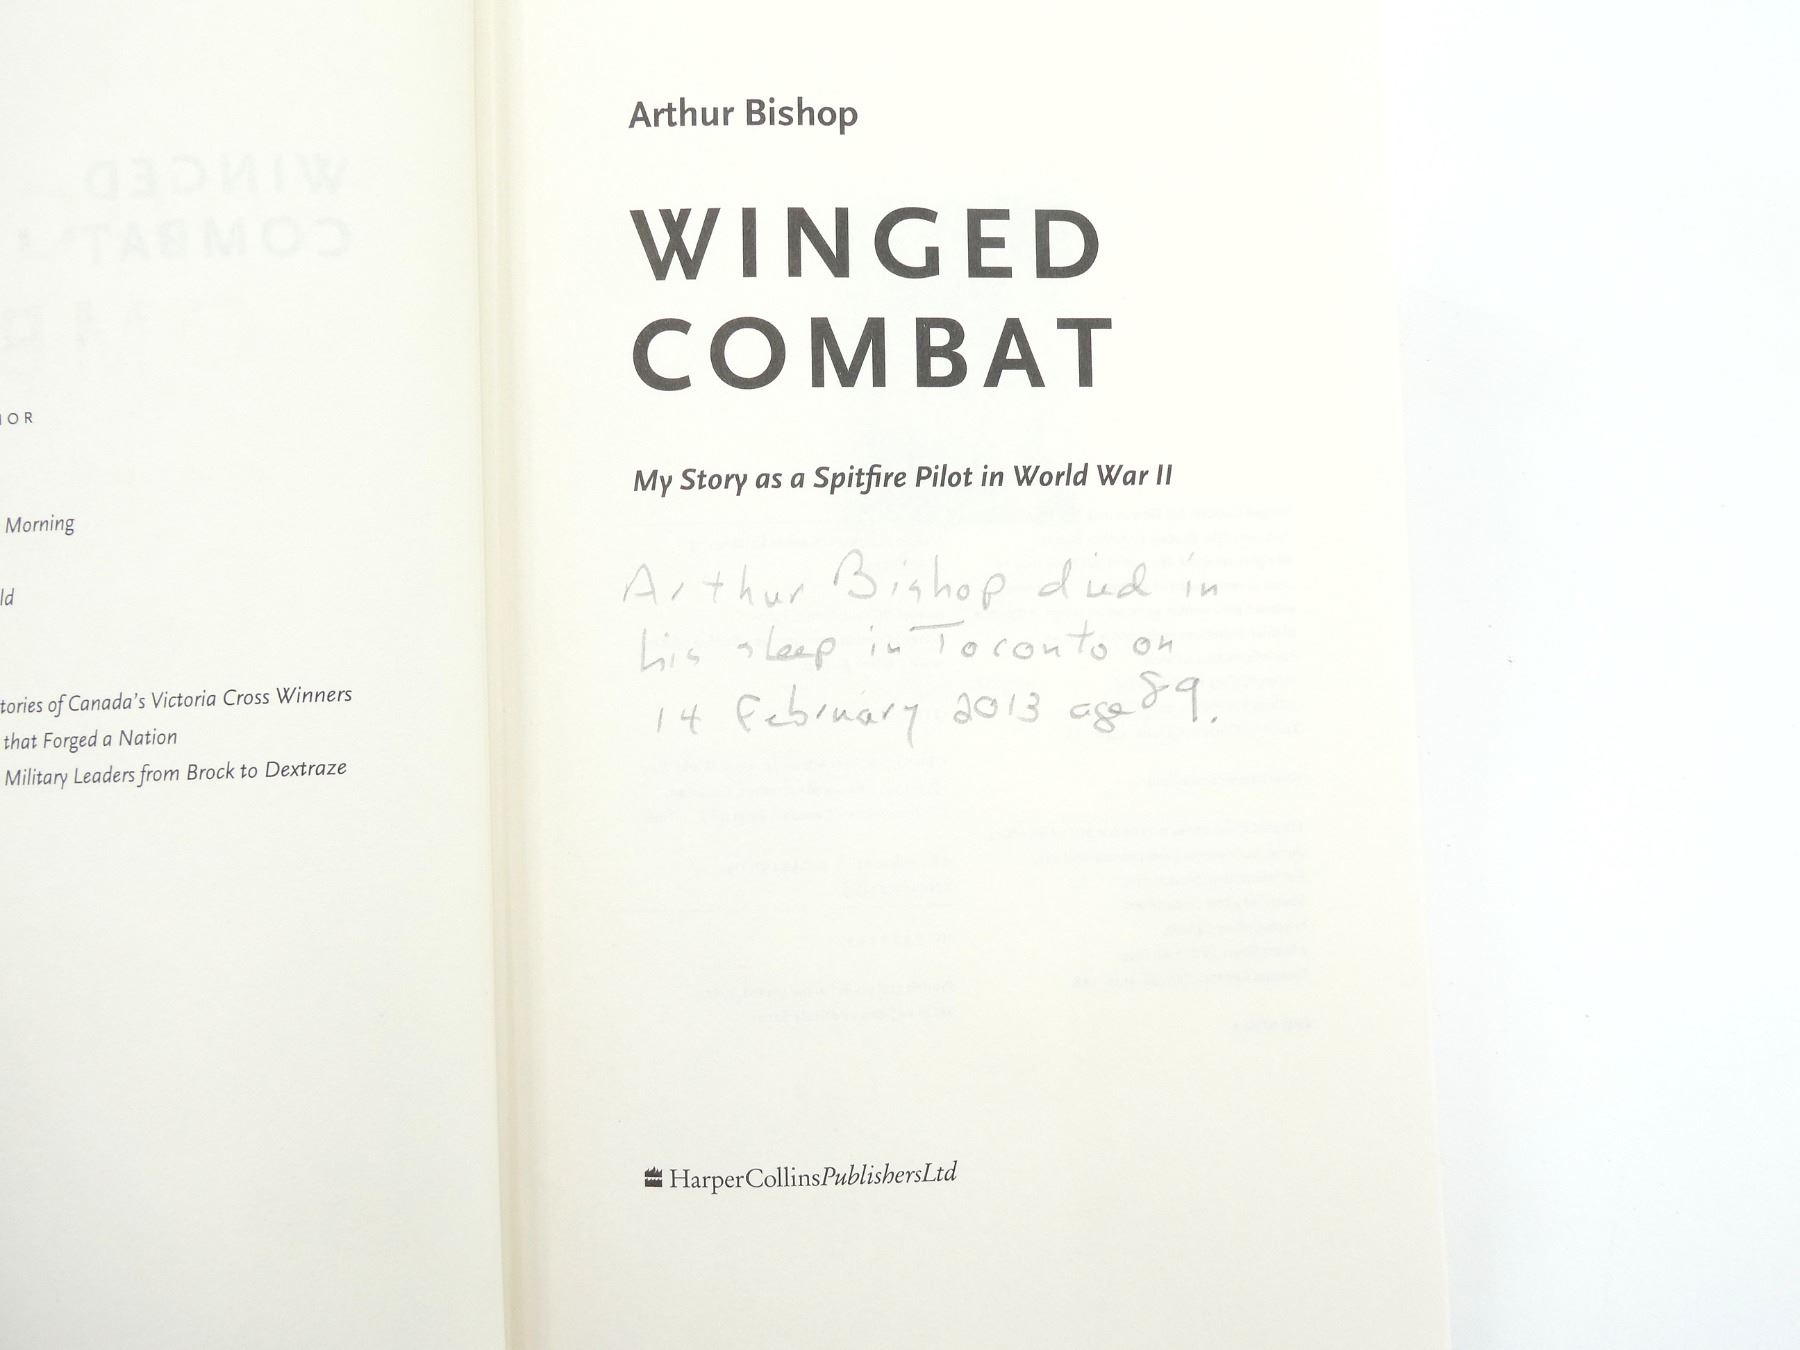 IOR
Morning
ld
tories of Canada's Victoria Cross Winners
that Forged a Nation
Military Leaders from Brock to Dextraze
Arthur Bishop
WINGED
COMBAT
My Story as a Spitfire Pilot in World War II
Arthur Bishop died in
his sleep in Toronto on
14 February 2013 age 89.
HarperCollinsPublishersLtd